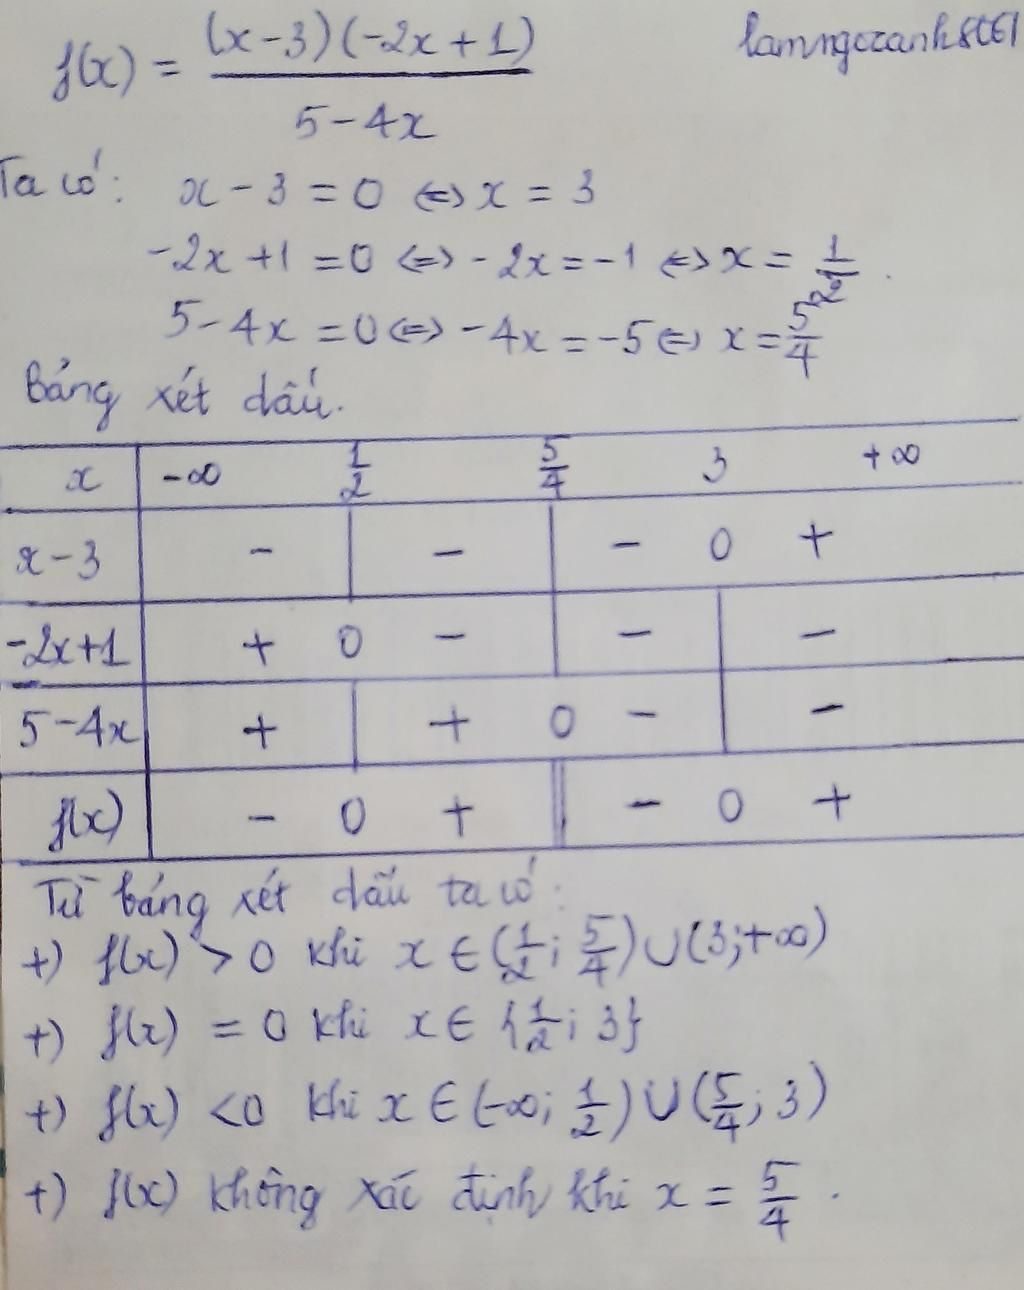 f(x) = (x-3)(-2x+1) / 5-4x
lamngocanh8061
Ta có: x-3=0 ⇔ x=3
-2x+1=0 ⇔ -2x=-1 ⇔ x=1/2.
5-4x=0 ⇔ -4x=-5 ⇔ x=5/4
Bảng xét dấu.
x -∞ 1/2 5/4 3 +∞
x-3 - | - | - 0 +
-2x+1 + 0 - | - | -
5-4x + | + 0 - | -
f(x) - 0 + || - 0 +
Từ bảng xét dấu ta có:
+) f(x) > 0 khi x ∈ (1/2; 5/4) ∪ (3; +∞)
+) f(x) = 0 khi x ∈ {1/2; 3}
+) f(x) < 0 khi x ∈ (-∞; 1/2) ∪ (5/4; 3)
+) f(x) không xác định khi x = 5/4.